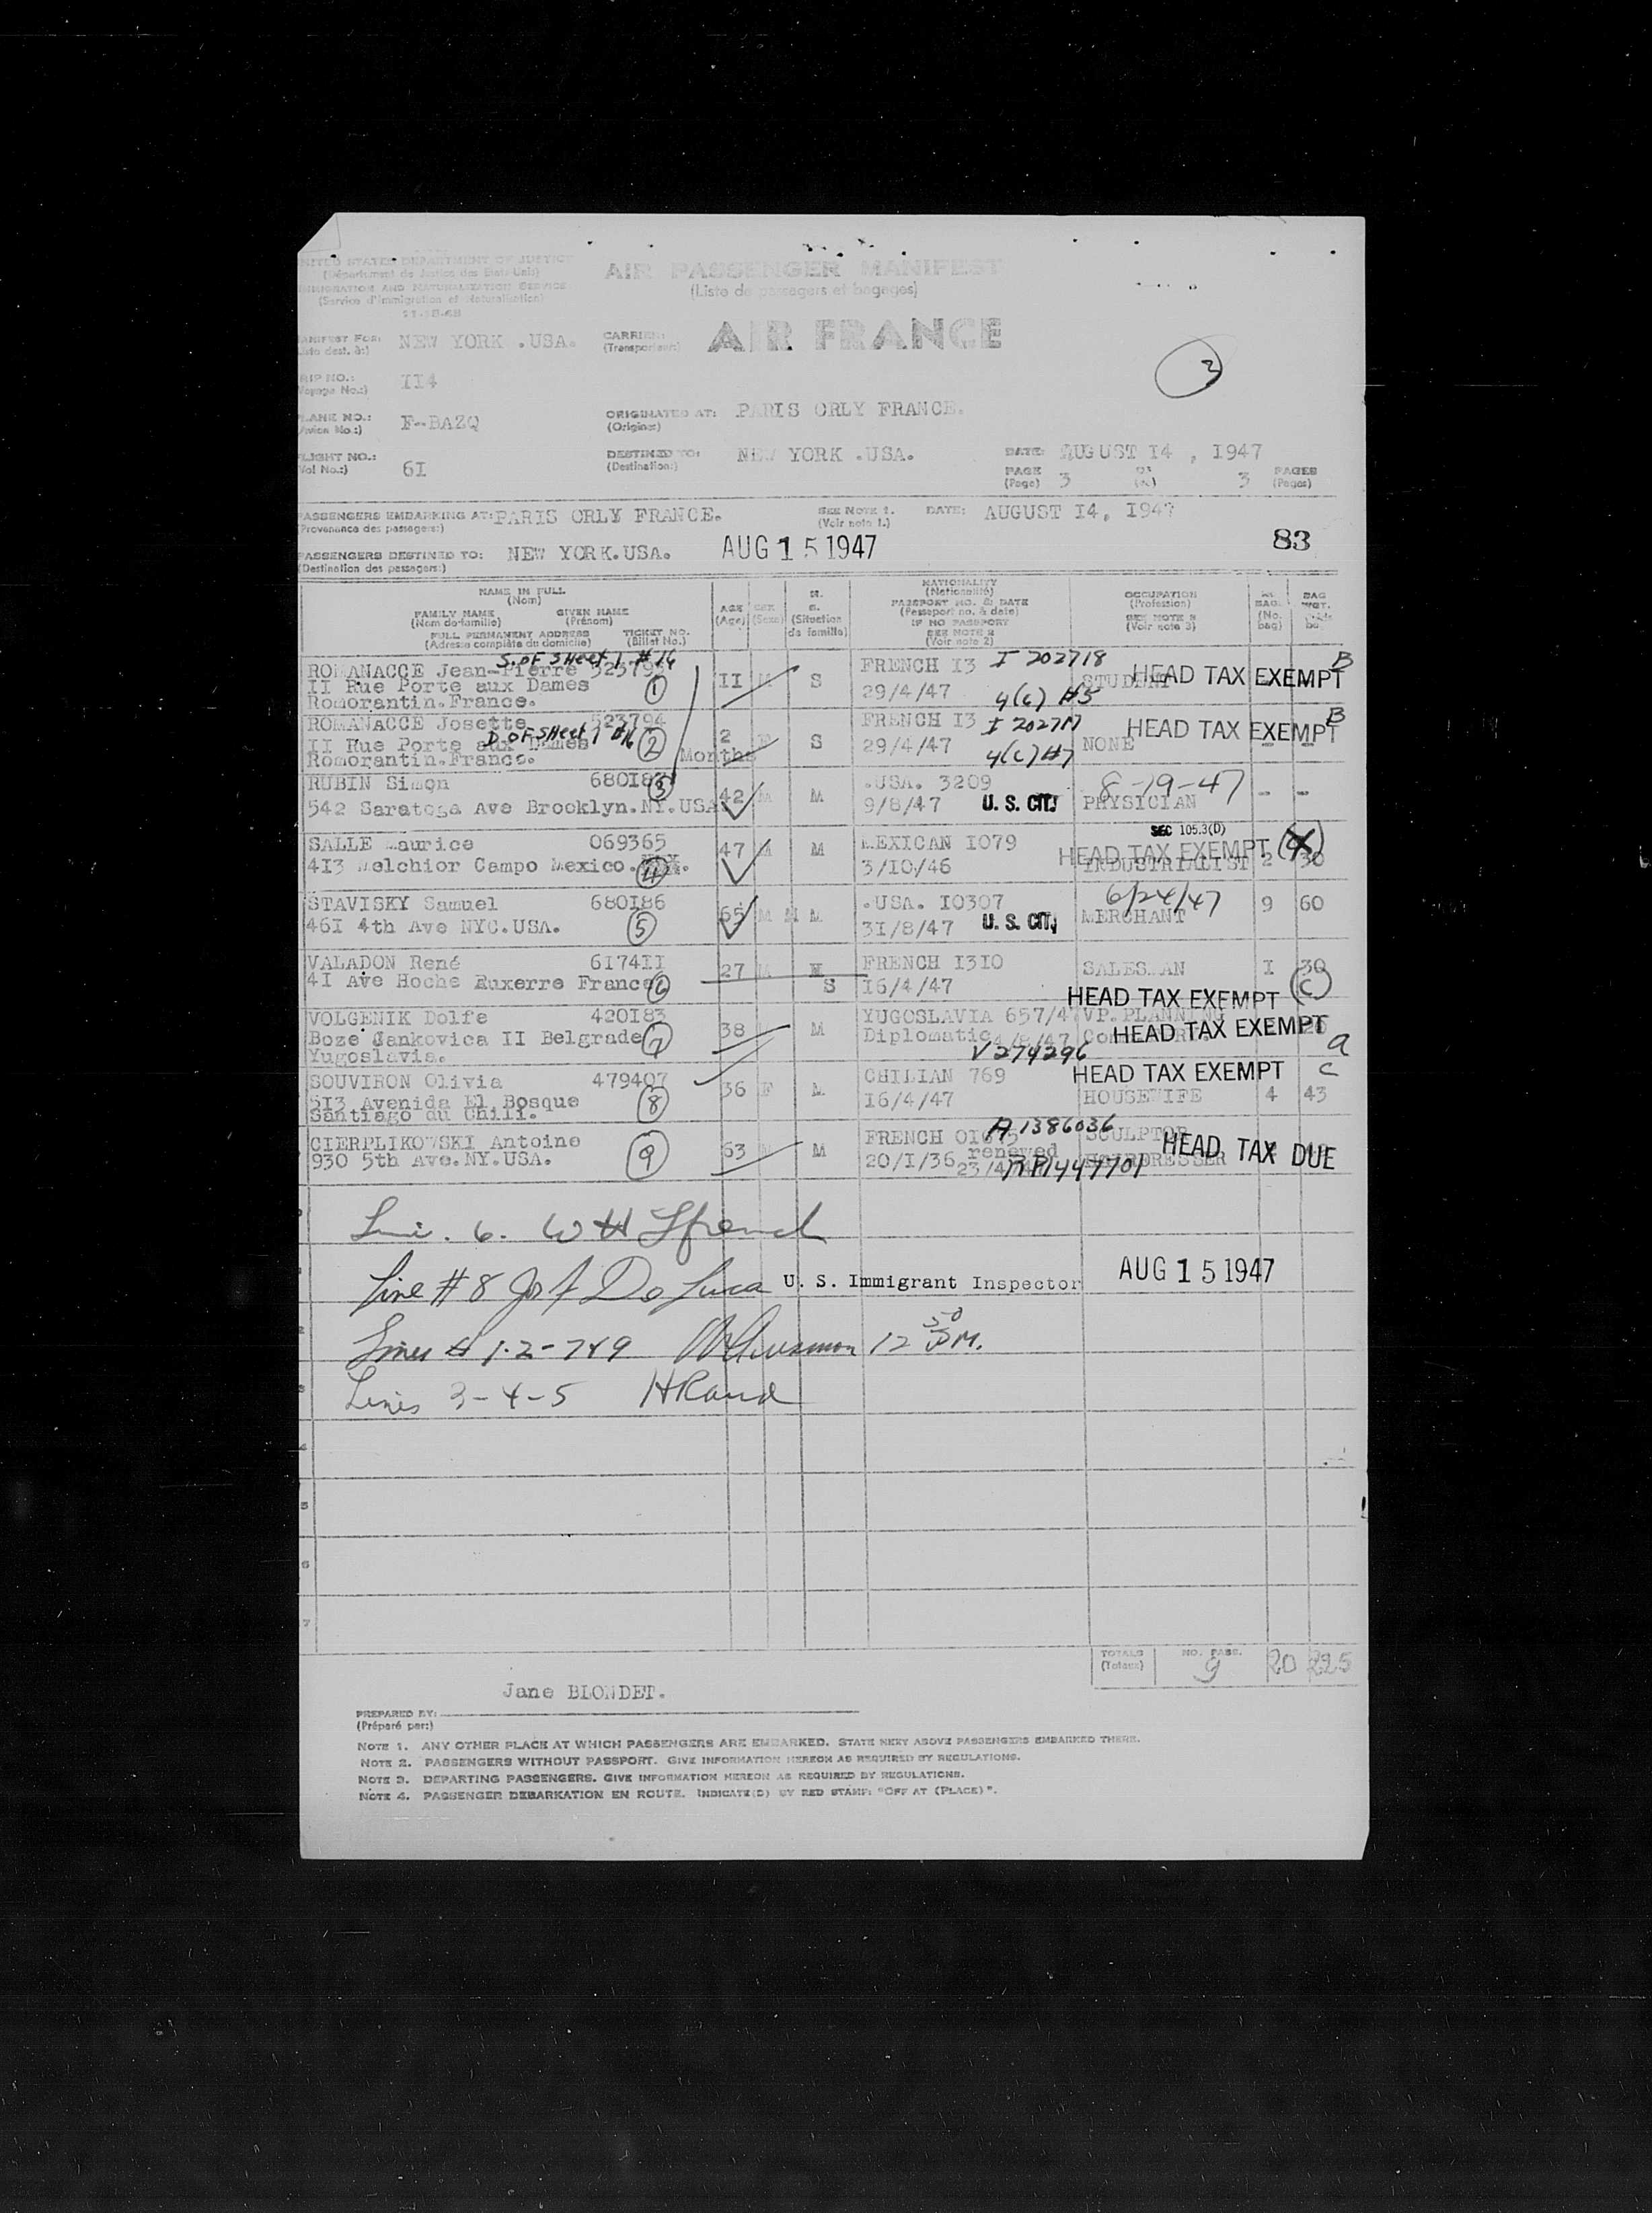 UNITED STATES DEPARTMENT OF JUSTICE
(Département de Justice des Etats-Unis)
IMMIGRATION AND NATURALIZATION SERVICE
(Service d'Immigration et Naturalisation)
AIR PASSENGER MANIFEST
(Liste de passagers et bagages)
MANIFEST FOR: NEW YORK .USA.
(Liste dest. à:)
CARRIER: AIR FRANCE
(Transporteur:)
3
TRIP NO.: II4
(Voyage No.:)
PLANE NO.: F-BAZQ
(Avion No.:)
ORIGINATED AT: PARIS ORLY FRANCE.
(Origine:)
FLIGHT NO.: 6I
(Vol No.:)
DESTINED TO: NEW YORK .USA.
(Destination:)
DATE: AUGUST I4 , I947
PAGE 3 3 PAGES
(Page) (Pages)
PASSENGERS EMBARKING AT: PARIS ORLY FRANCE. SEE NOTE 1. DATE: AUGUST I4, I947
(Provenance des passagers:) (Voir note 1.)
83
PASSENGERS DESTINED TO: NEW YORK.USA. AUG 15 1947
(Destination des passagers:)
NAME IN FULL
(Nom)
FAMILY NAME GIVEN NAME
(Nom de famille) (Prénom)
FULL PERMANENT ADDRESS TICKET NO.
(Adresse complète du domicile) (Billet No.)
AGE
(Age)
SEX
(Sexe)
(Situation de famille)
NATIONALITY
(Nationalité)
PASSPORT NO. & DATE
(Passeport no. & date)
IF NO PASSPORT
SEE NOTE 2
(Voir note 2)
OCCUPATION
(Profession)
(Voir note 3)
S. OF SHeet 1 #16
ROMANACCE Jean-Pierre II M S FRENCH I3 I 202718 HEAD TAX EXEMPT B
II Rue Porte aux Dames 1 29/4/47 STUDENT
Romorantin.France. 4(c) #5
ROMANACCE Josette 523794 2 F S FRENCH I3 I 202717 HEAD TAX EXEMPT B
D. OF SHeet 1 #16
II Rue Porte aux Dames 2 Months 29/4/47 NONE
Romorantin.France. 4(c) #7
RUBIN Simon 3 42 M M .USA. 3209 8-19-47
542 Saratoga Ave Brooklyn.NY.USA 9/8/47 U. S. CIT. PHYSICIAN - -
SEC 105.3(D)
SALLE Maurice 069365 47 M M MEXICAN I079 HEAD TAX EXEMPT
4I3 Melchior Campo Mexico. 4 3/I0/46 INDUSTRIALIST 2 30
STAVISKY Samuel 680I86 65 M M M .USA. I0307 6/24/47 9 60
46I 4th Ave NYC.USA. 5 3I/8/47 U. S. CIT. MERCHANT
VALADON René 6I74II 27 M M FRENCH I3I0 SALESMAN I 30
4I Ave Hoche Auxerre France 6 S I6/4/47 HEAD TAX EXEMPT C
VOLGENIK Dolfe 420I83 38 M YUGOSLAVIA 657/47 VP.PLANNING
Boze Jankovica II Belgrade 7 Diplomatic HEAD TAX EXEMPT a
Yugoslavia. V 274296
SOUVIRON Olivia 479407 36 F M CHILIAN 769 HEAD TAX EXEMPT C
5I3 Avenida El Bosque 8 I6/4/47 HOUSEWIFE 4 43
Santiago du Chili.
CIERPLIKOWSKI Antoine 9 63 M M FRENCH A 1386036 SCULPTOR
930 5th Ave.NY.USA. 20/I/36 renewed RP1447701 HAIRDRESSER HEAD TAX DUE
Line. 6. W H Ffrench
Line # 8 Jos A De Luca U. S. Immigrant Inspector AUG 15 1947
Lines # 1-2-7&9 12 50 P.M.
Lines 3-4-5 H Rand
TOTALS NO. PASS. 9 20 225
(Totaux)
Jane BLONDET.
PREPARED BY:
(Préparé par:)
NOTE 1. ANY OTHER PLACE AT WHICH PASSENGERS ARE EMBARKED. STATE NEXT ABOVE PASSENGERS EMBARKED THERE.
NOTE 2. PASSENGERS WITHOUT PASSPORT. GIVE INFORMATION HEREON AS REQUIRED BY REGULATIONS.
NOTE 3. DEPARTING PASSENGERS. GIVE INFORMATION HEREON AS REQUIRED BY REGULATIONS.
NOTE 4. PASSENGER DEBARKATION EN ROUTE. INDICATE(D) BY RED STAMP: "OFF AT (PLACE)".